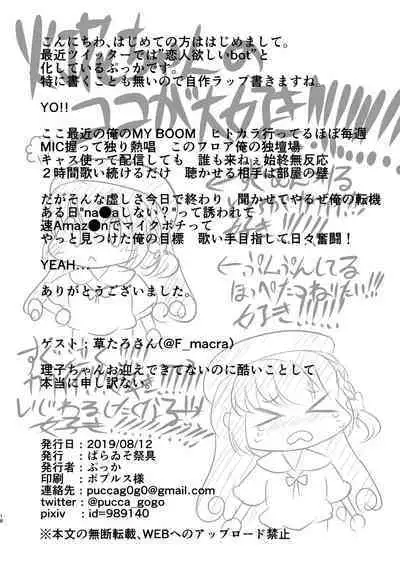 こんにちわ、はじめての方ははじめまして。
最近ツイッターでは”恋人欲しいbot”と
化しているぷっかです。
特に書くことも無いので自作ラップ書きますね。
YO!!
ここ最近の俺のMY BOOM　ヒトカラ行ってるほぼ毎週
MIC握って独り熱唱　このフロア俺の独壇場
キャス使って配信しても　誰も来ねぇ始終無反応
２時間歌い続けるだけ　聴かせる相手は部屋の壁
だがそんな虚しさ今日で終わり　聞かせてやるぜ俺の転機
ある日"na●aしない？"って誘われて
速Amaz●nでマイクポチって
やっと見つけた俺の目標　歌い手目指して日々奮闘！
YEAH...
ありがとうございました。
←ぷんぷんしてる
ほっぺたつねりたい!!
好き!!!!
ゲスト：草たろさん(@F_macra)
理子ちゃんお迎えできてないのに酷いことして
本当に申し訳ない。
発行日：2019/08/12
発行　：ばらゐそ祭具
発行者：ぷっか
印刷　：ポプルス様
連絡先：puccag0g0@gmail.com
twitter：@pucca_gogo
pixiv　：id=989140
※本文の無断転載、WEBへのアップロード禁止